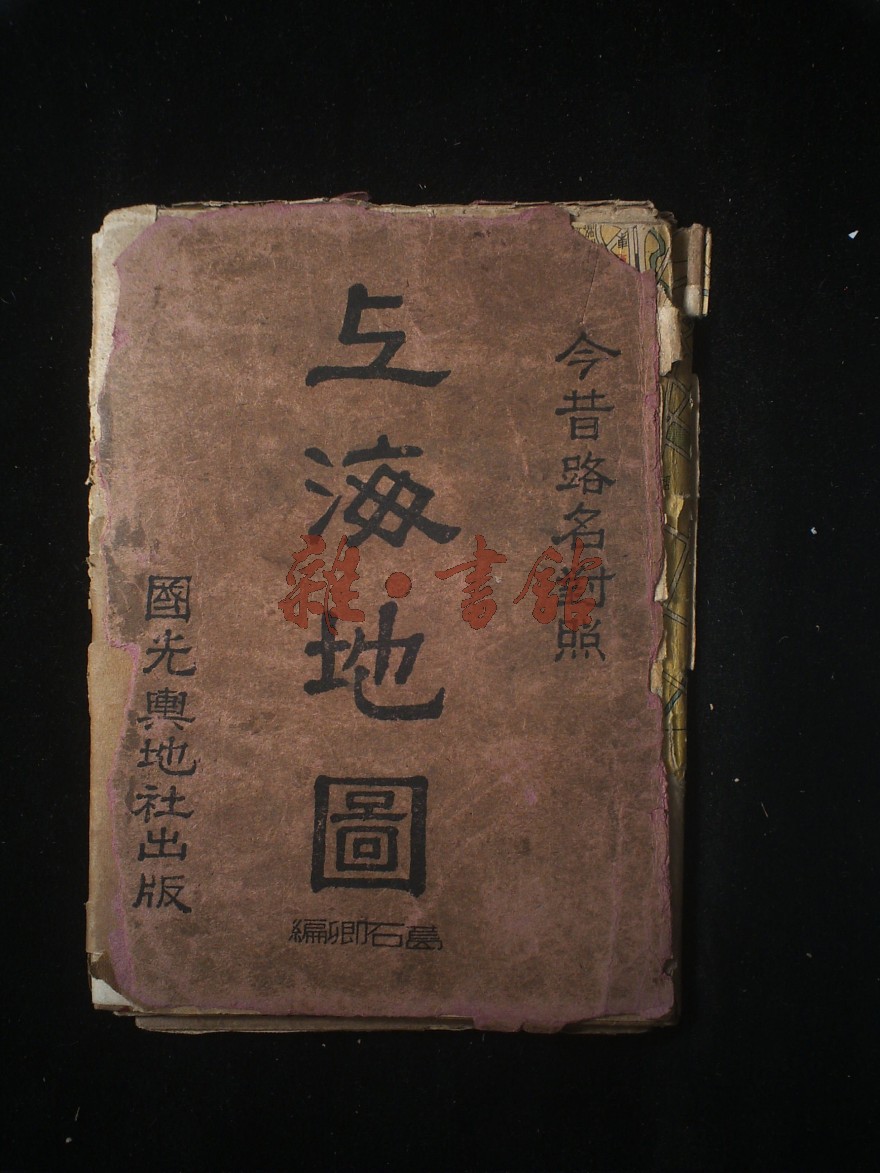 今昔路名對照
上海地圖
葛石卿編
國光輿地社出版
雜·書館